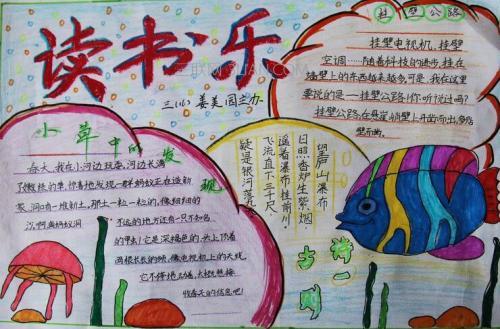 读书乐
三(1) 姜美园主办
挂壁公路
挂壁电视机,挂壁
空调……随着科技的进步,挂在
墙壁上的东西越来越多,可是,我在这里
要说的是——挂壁公路!你听说过吗?
挂壁公路,在悬崖峭壁上开凿而出,劈房
壁而凿。
小草中的发现
春天,我在小河边玩耍,河边长满
了嫩绿的草,惊喜地发现一群蚂蚁正在造新
家,洞口有一堆新土,那土一粒一粒的,像细细的
沙,啊,蚂蚁洞
不远的地方还有一只不知名
的甲虫!它是深褐色的,头上顶着
两根长长的须,像电视机上的天线,
它不停地动着,大概想接
收春天的信息吧!
望庐山瀑布
日照香炉生紫烟
遥看瀑布挂前川
飞流直下三千尺
疑是银河落九
古诗一